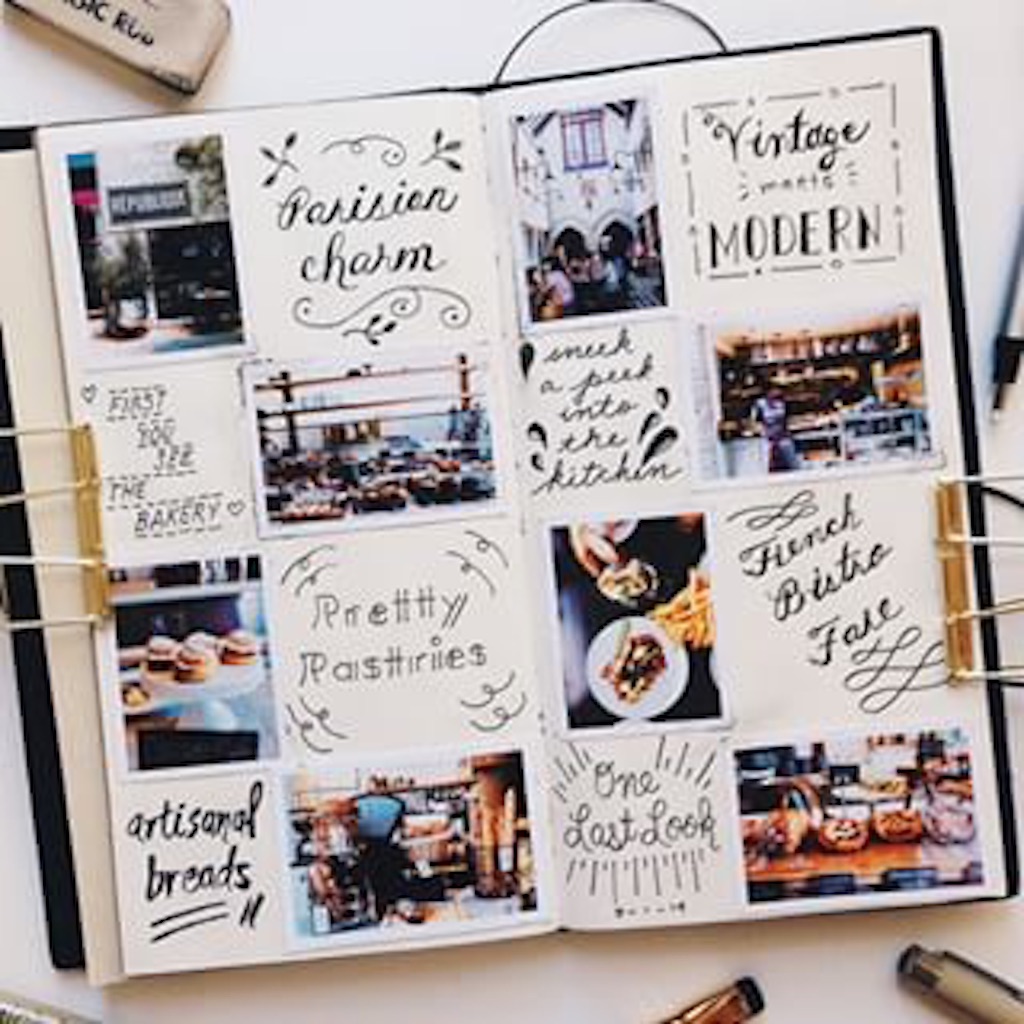 Parisian
charm
FIRST
YOU
SEE
THE
BAKERY
Pretty
Pastries
artisanal
breads
Vintage
meets
MODERN
sneek
a peek
into
the
kitchen
French
Bistro
Fare
One
Last Look